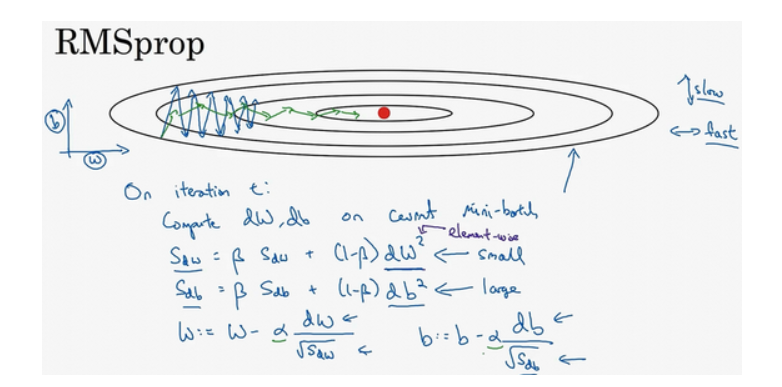 RMSprop
b
w
slow
fast
On iteration t:
Compute dW, db on current mini-batch
element-wise
Sdw = β Sdw + (1-β) dW² ← small
Sdb = β Sdb + (1-β) db² ← large
W := W - α dW/√Sdw ← b := b - α db/√Sdb ←